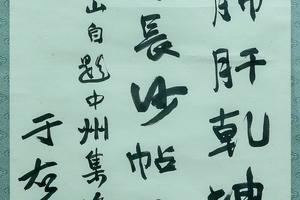 肺肝乾坤
長沙帖
山自題中州集
于右